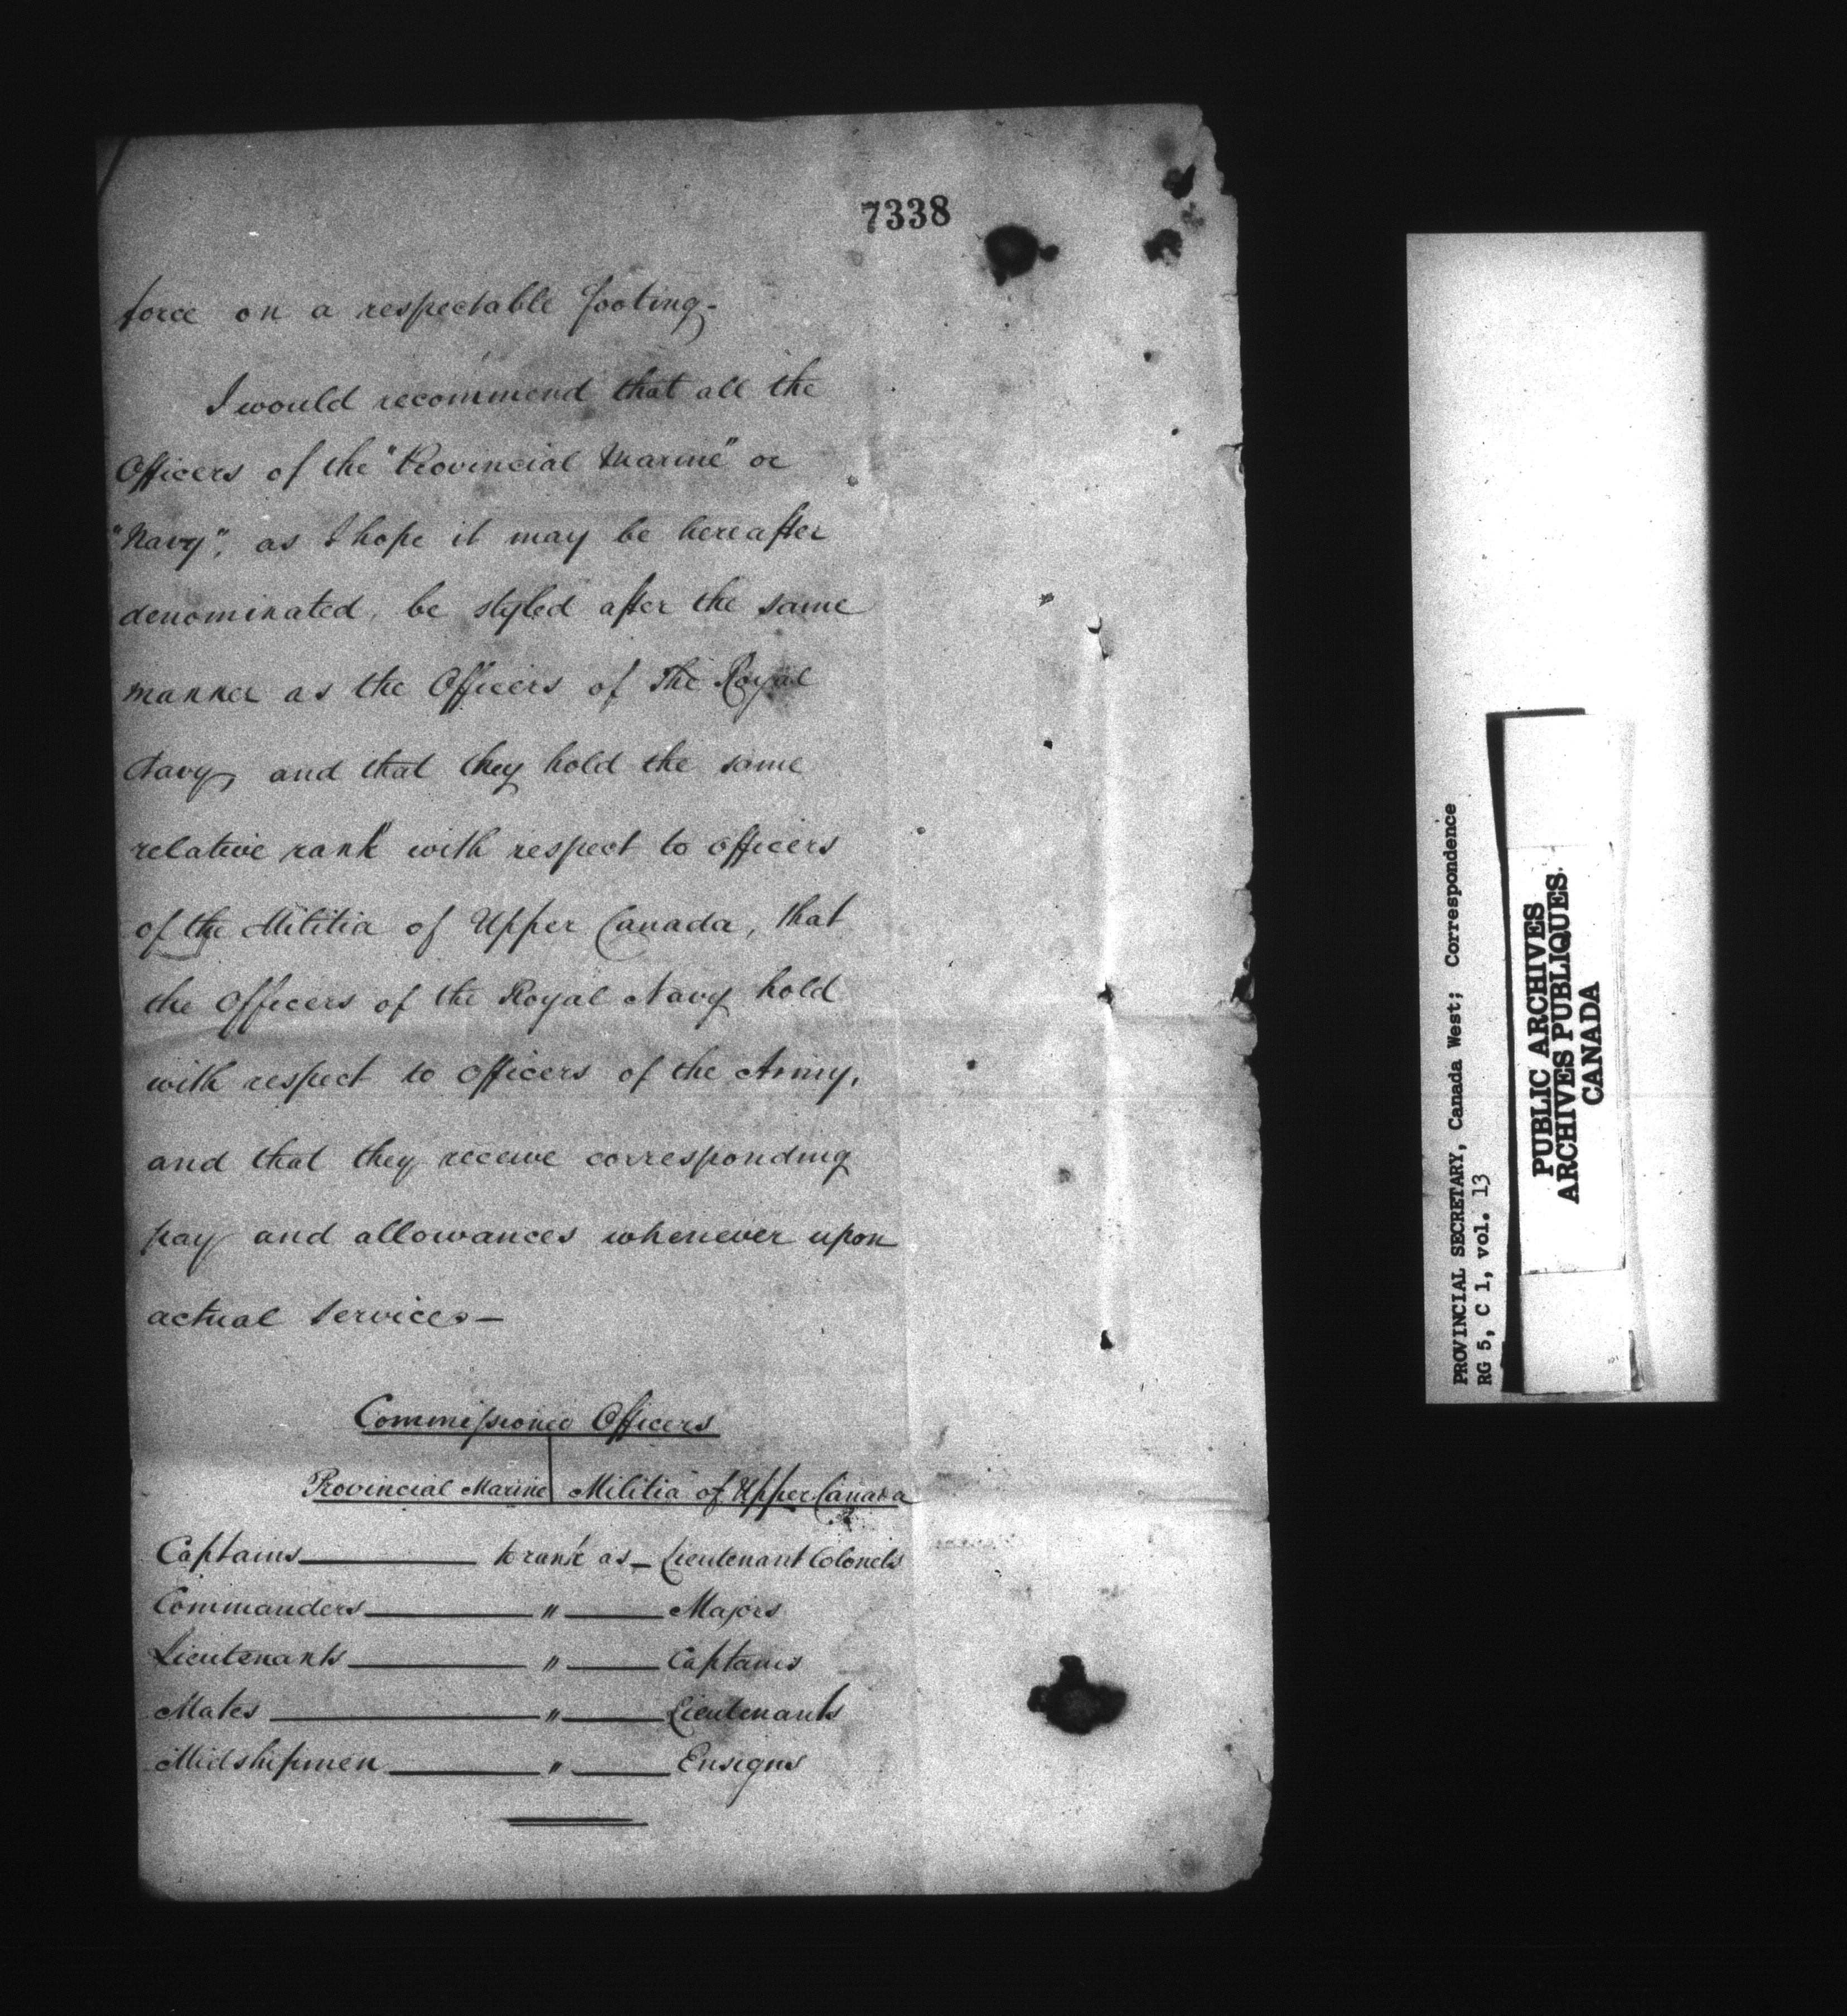 7338
force on a respectable footing-
I would recommend that all the
Officers of the "Provincial Marine" or
"Navy", as I hope it may be hereafter
denominated, be styled after the same
manner as the Officers of The Royal
Navy, and that they hold the same
relative rank with respect to officers
of the Militia of Upper Canada, that
the Officers of the Royal Navy hold
with respect to Officers of the Army,
and that they receive corresponding
pay and allowances whenever upon
actual service.—
Commissioned Officers
Provincial Marine | Militia of Upper Canada
Captains — to rank as — Lieutenant Colonels
Commanders — " — Majors
Lieutenants — " — Captains
Mates — " — Lieutenants
Midshipmen — " — Ensigns
PROVINCIAL SECRETARY, Canada West; Correspondence
RG 5, C 1, vol. 13
PUBLIC ARCHIVES
ARCHIVES PUBLIQUES
CANADA